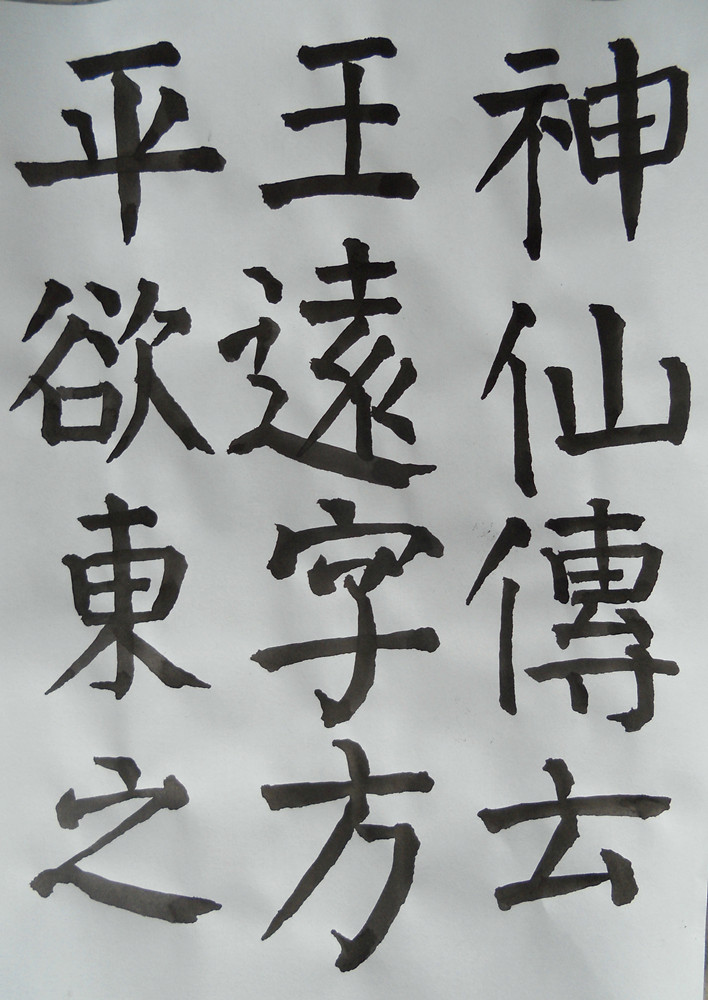 神仙傳云
王遠字方
平欲東之